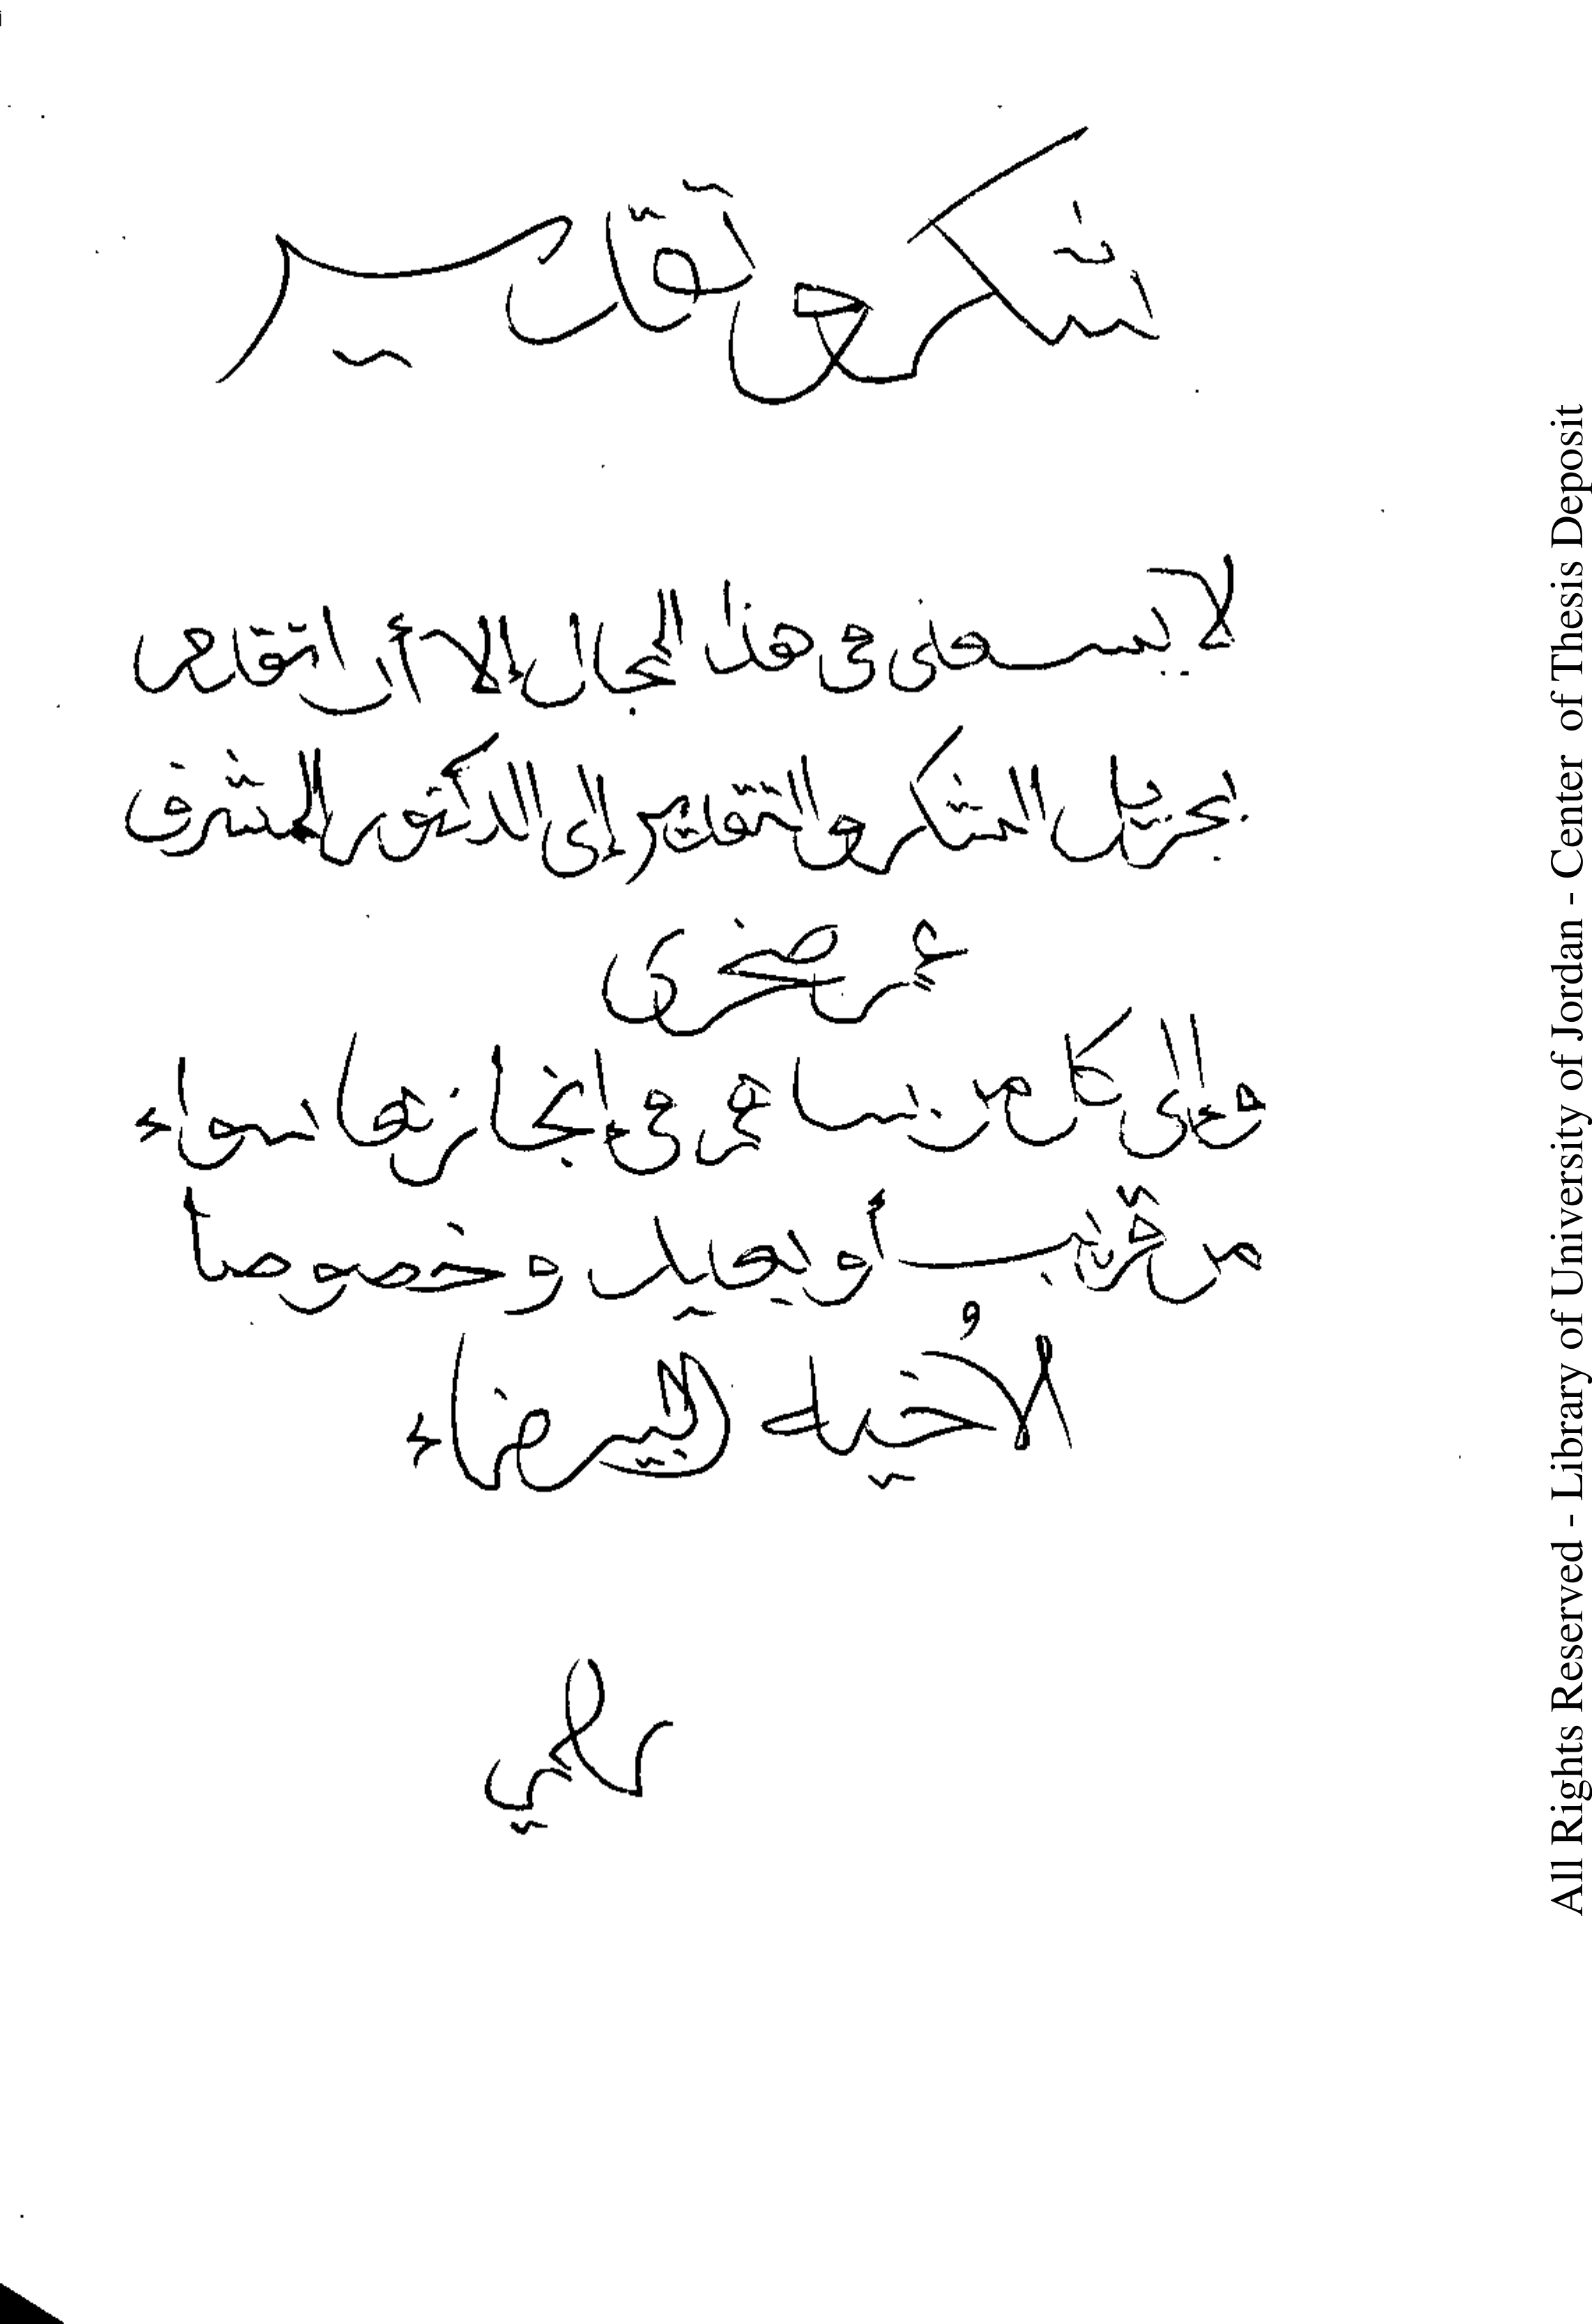 شكر وتقدير
لا يسعني في هذا المجال إلا أن اتقدم
بجزيل الشكر والتقدير إلى الدكتور المشرف
عمر صخري
وإلى كل من ساعدني في إنجازها سواء
من قريب أو بعيد وخصوصا
الأخية البيضاء
All Rights Reserved - Library of University of Jordan - Center of Thesis Deposit